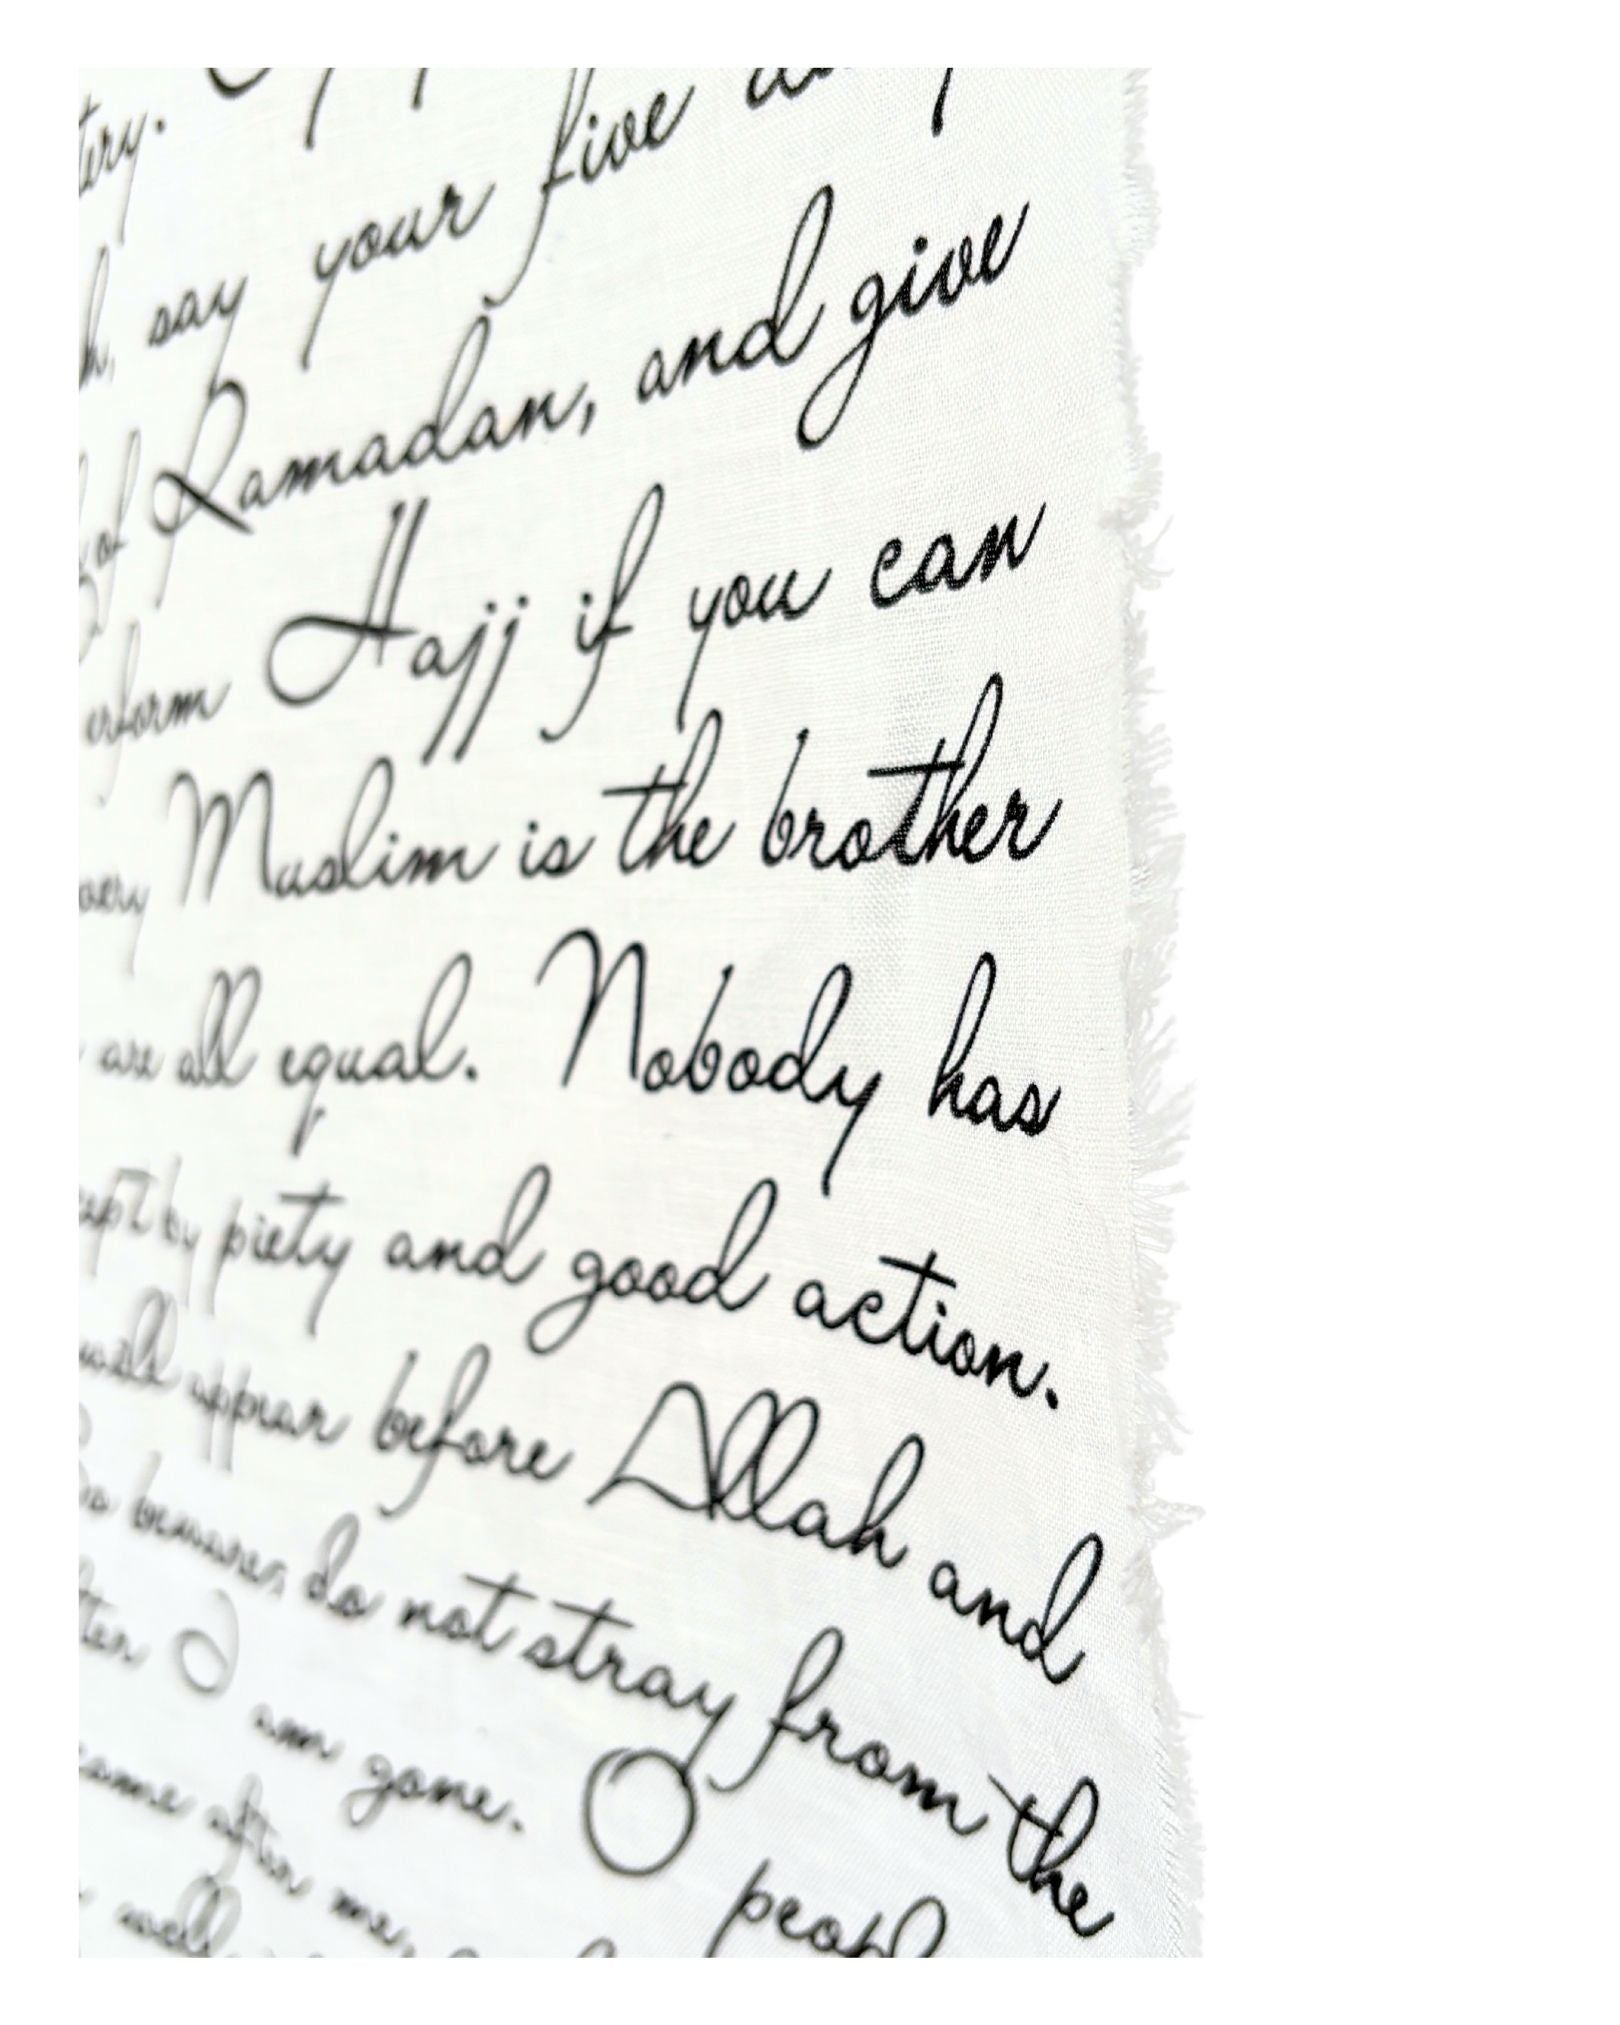 say your five
of Ramadan, and give
Hajj if you can
Muslim is the brother
are all equal. Nobody has
by piety and good action.
will appear before Allah and
beware, do not stray from the
I am gone. O
came after me,